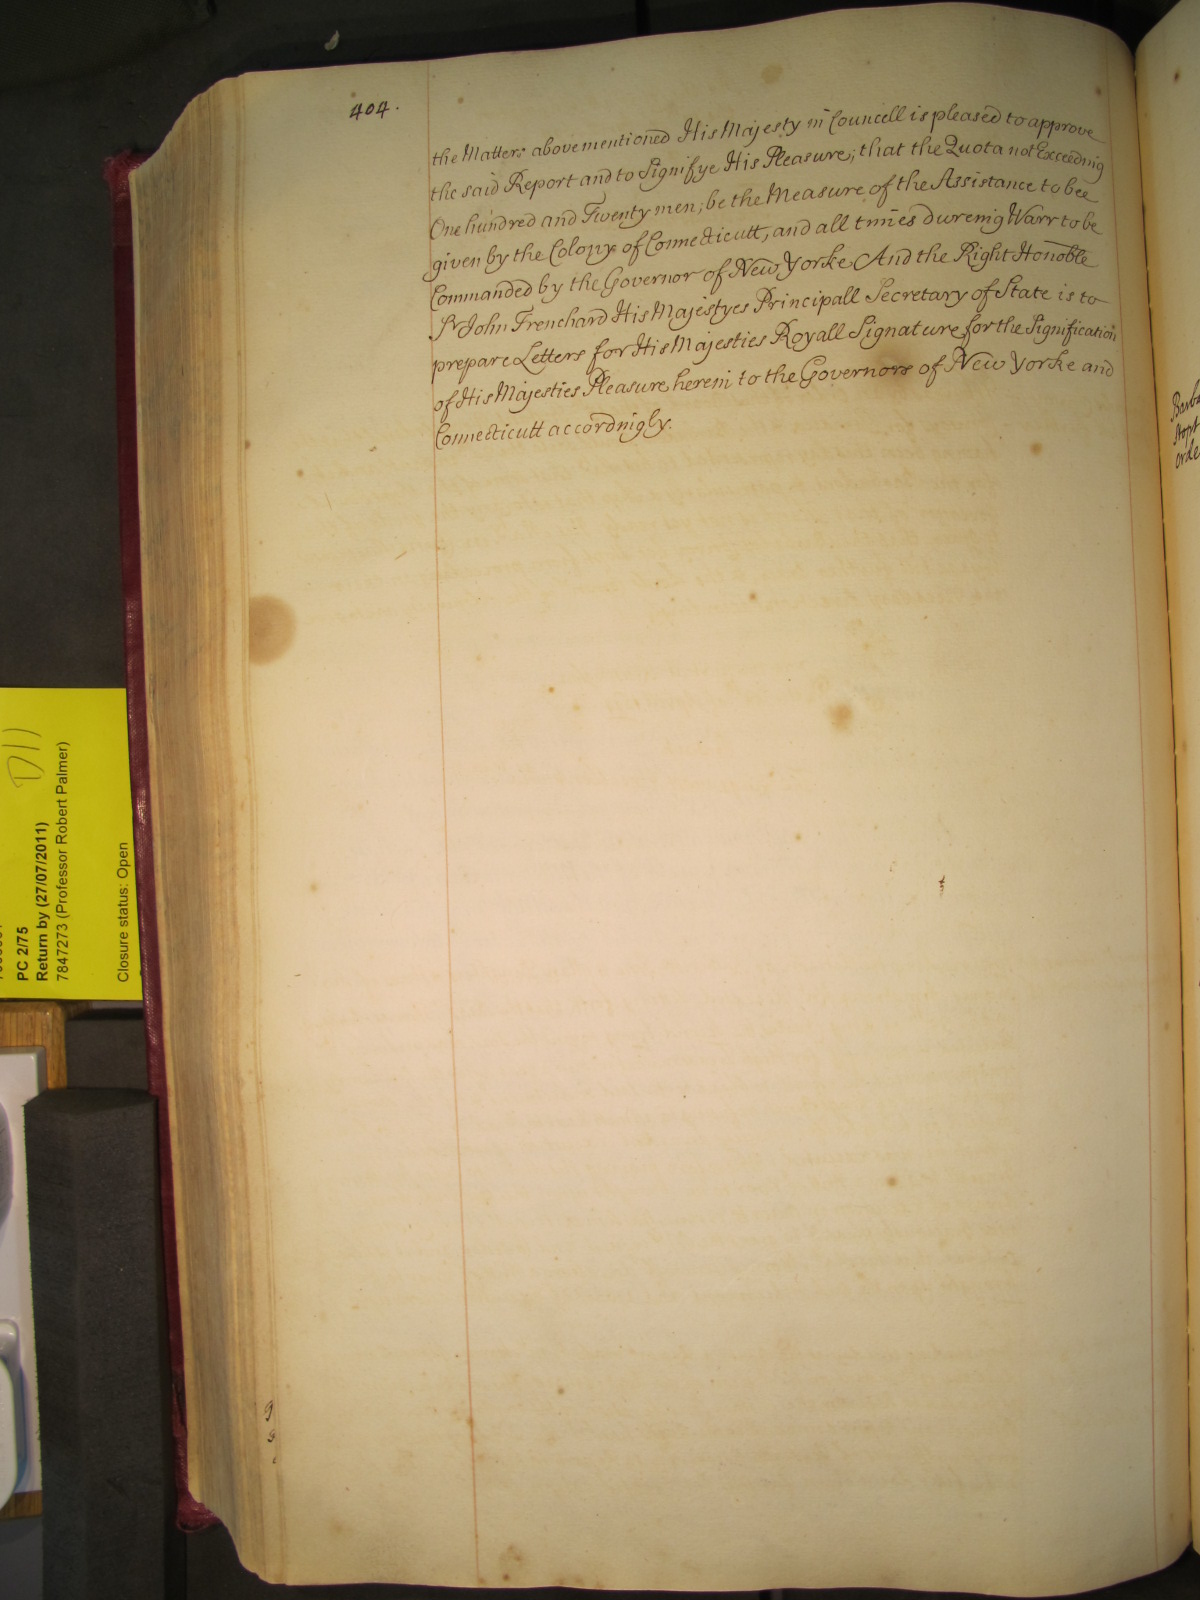 404.
the Matters abovementioned His Majesty in Councell is pleased to approve
the said Report and to Signifye His Pleasure; that the Quota not Exceeding
One hundred and Twenty men; be the Measure of the Assistance to bee
given by the Colony of Connecticutt, and all times dureing Warr to be
Commanded by the Governor of New Yorke And the Right Honoble
Sr John Trenchard His Majestyes Principall Secretary of State is to
prepare Letters for His Majesties Royall Signature for the Signification
of His Majesties Pleasure herein to the Governors of New Yorke and
Connecticutt accordingly.
PC 2/75
Return by (27/07/2011)
7847273 (Professor Robert Palmer)
Closure status: Open
D11